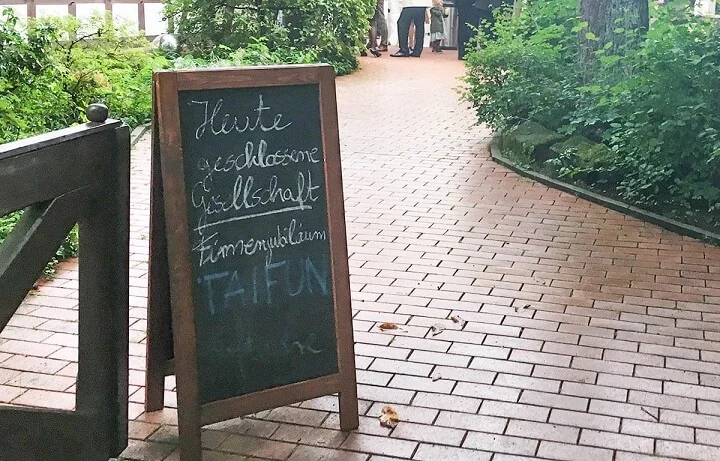 Heute
geschlossene
Gesellschaft
Firmenjubiläum
TAIFUN